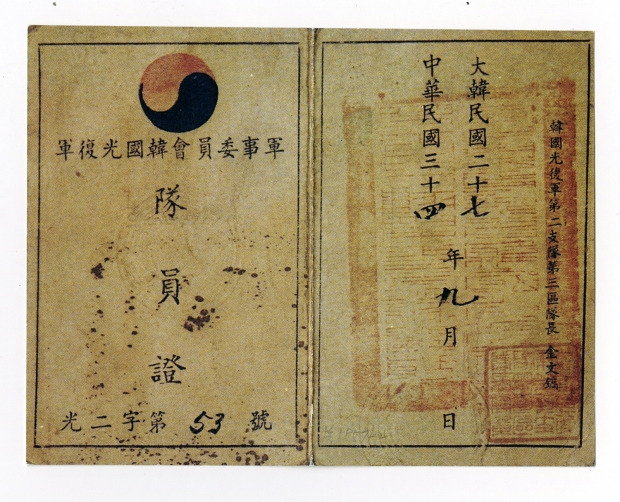 軍事委員會韓國光復軍
隊員證
光二字第 53 號
韓國光復軍第二支隊第三區隊長 金文鎬
大韓民國二十七
中華民國三十四
年九月 日